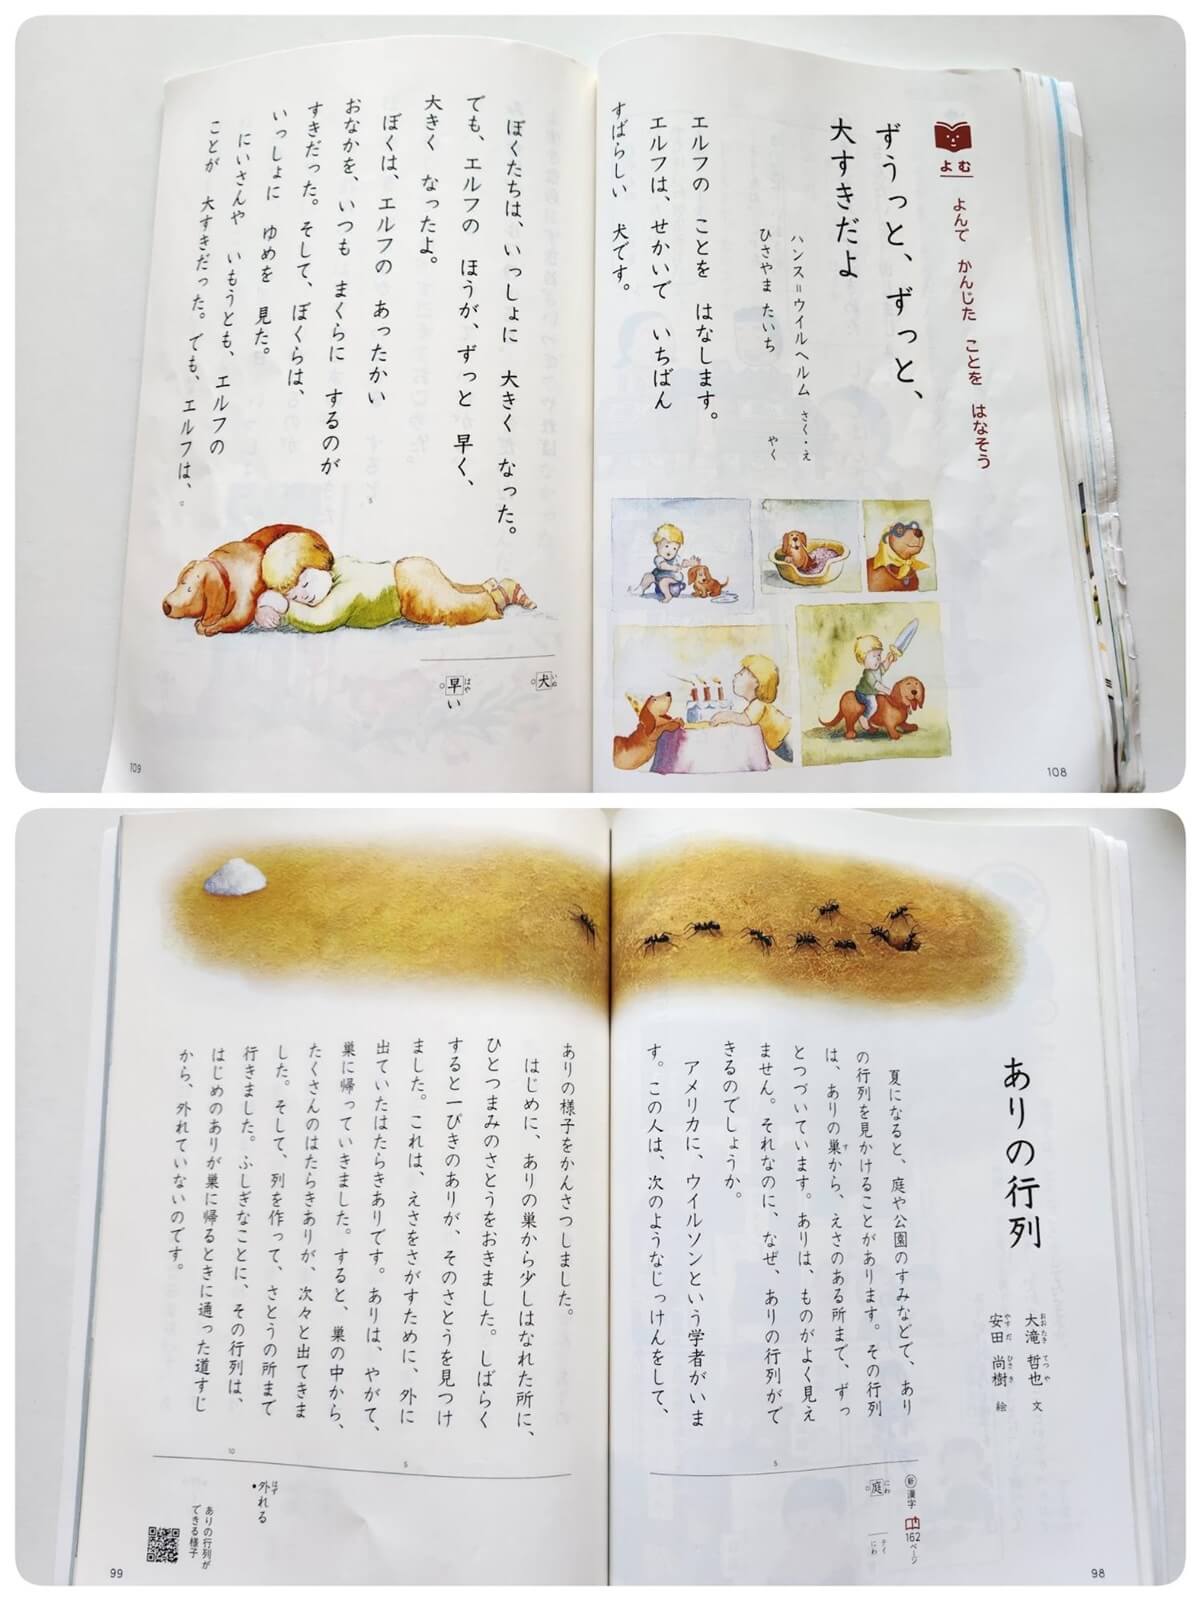 よむ
よんで かんじた ことを はなそう
ずうっと、ずっと、
大すきだよ
ハンス＝ウイルヘルム さく・え
ひさやま たいち やく
エルフの ことを はなします。
エルフは、せかいで いちばん
すばらしい 犬です。
108
ぼくたちは、いっしょに 大きく なった。
でも、エルフの ほうが、ずっと 早く、
大きく なったよ。
ぼくは、エルフの あったかい
おなかを、いつも まくらに するのが
すきだった。そして、ぼくらは、
いっしょに ゆめを 見た。
にいさんや いもうとも、エルフの
ことが 大すきだった。でも、エルフは、
5
犬
いぬ
早い
はや
109
ありの行列
大滝 哲也 文
おおたき てつや
安田 尚樹 絵
やすだ ひさき
夏になると、庭や公園のすみなどで、あり
の行列を見かけることがあります。その行列
は、ありの巣から、えさのある所まで、ずっ
す
とつづいています。ありは、ものがよく見え
ません。それなのに、なぜ、ありの行列がで
きるのでしょうか。
アメリカに、ウイルソンという学者がいま
す。この人は、次のようなじっけんをして、
5
新 漢字 162ページ
庭
にわ
テイ
にわ
98
ありの様子をかんさつしました。
はじめに、ありの巣から少しはなれた所に、
ひとつまみのさとうをおきました。しばらく
すると一ぴきのありが、そのさとうを見つけ
ました。これは、えさをさがすために、外に
出ていたはたらきありです。ありは、やがて、
巣に帰っていきました。すると、巣の中から、
たくさんのはたらきありが、次々と出てきま
した。そして、列を作って、さとうの所まで
行きました。ふしぎなことに、その行列は、
はじめのありが巣に帰るときに通った道すじ
から、外れていないのです。
5
10
外れる
はず
ありの行列が
できる様子
99